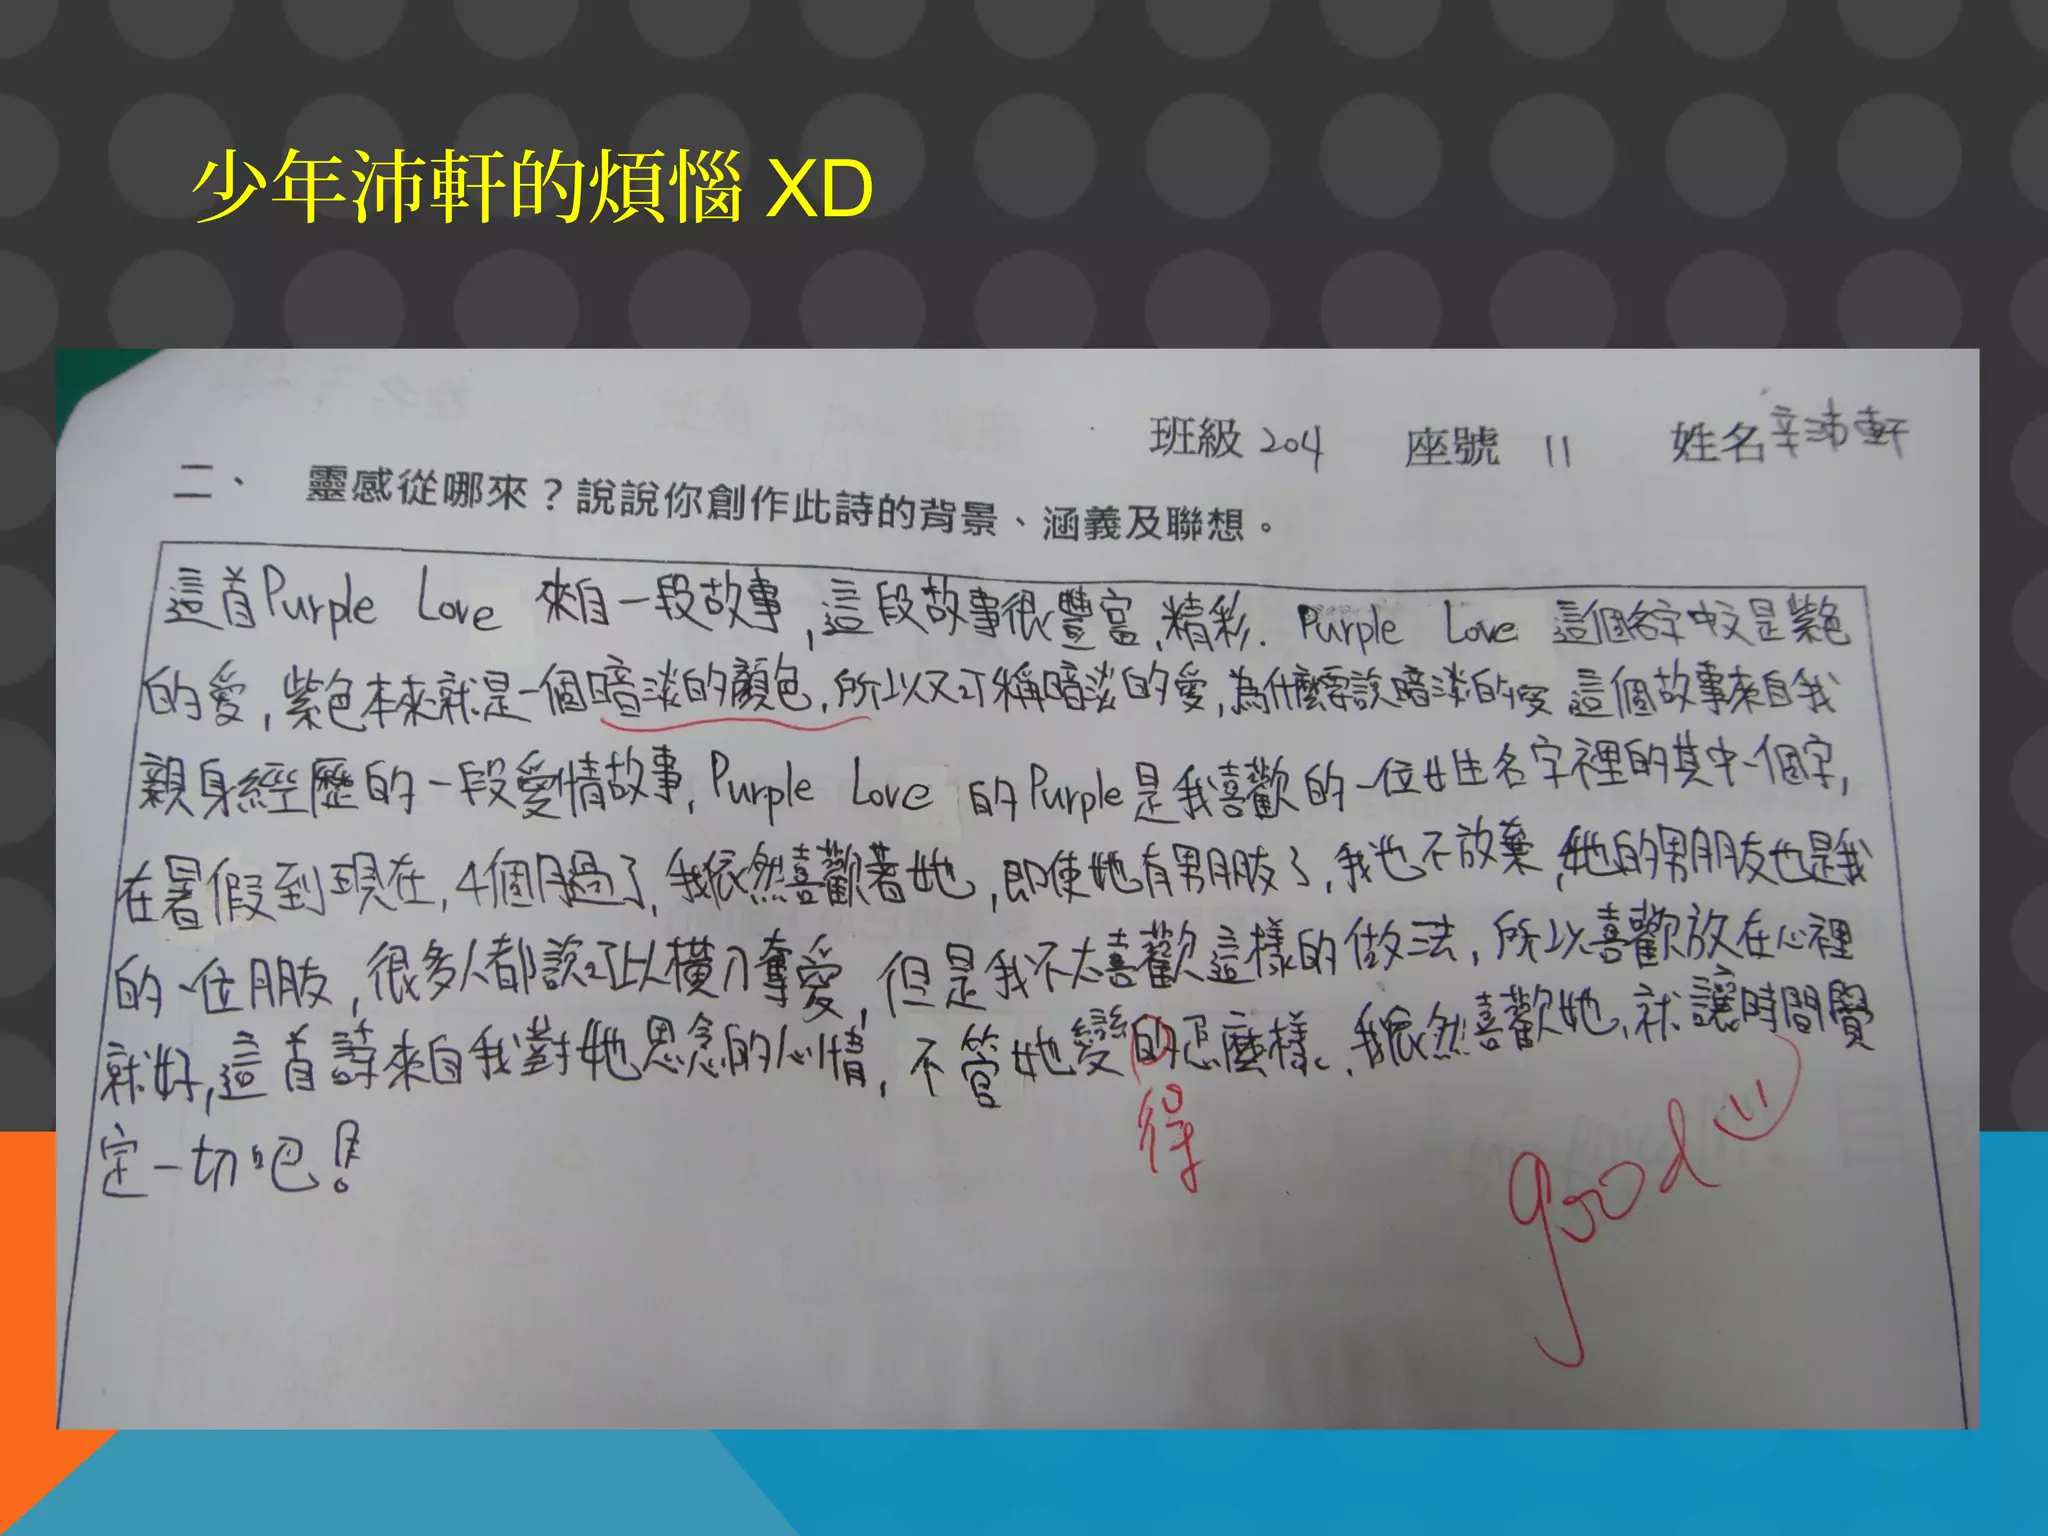 少年沛軒的煩惱 XD
班級 204 座號 11 姓名 辛沛軒
二、 靈感從哪來？說說你創作此詩的背景、涵義及聯想。
這首Purple Love 來自一段故事,這段故事很豐富,精彩. Purple Love 這個名字中文是紫色
的愛,紫色本來就是一個暗淡的顏色,所以又可稱暗淡的愛,為什麼要說暗淡的愛 這個故事來自我
親身經歷的一段愛情故事, Purple Love 的Purple是我喜歡的一位女生名字裡的其中一個字,
在暑假到現在,4個月過了,我依然喜歡著她,即使她有男朋友了,我也不放棄,她的男朋友也是我
的一位朋友,很多人都說可以橫刀奪愛,但是我不太喜歡這樣的做法,所以喜歡放在心裡
就好,這首詩來自我對她思念的心情,不管她變的怎麼樣,我依然喜歡她,就讓時間買
得
定一切吧!
good